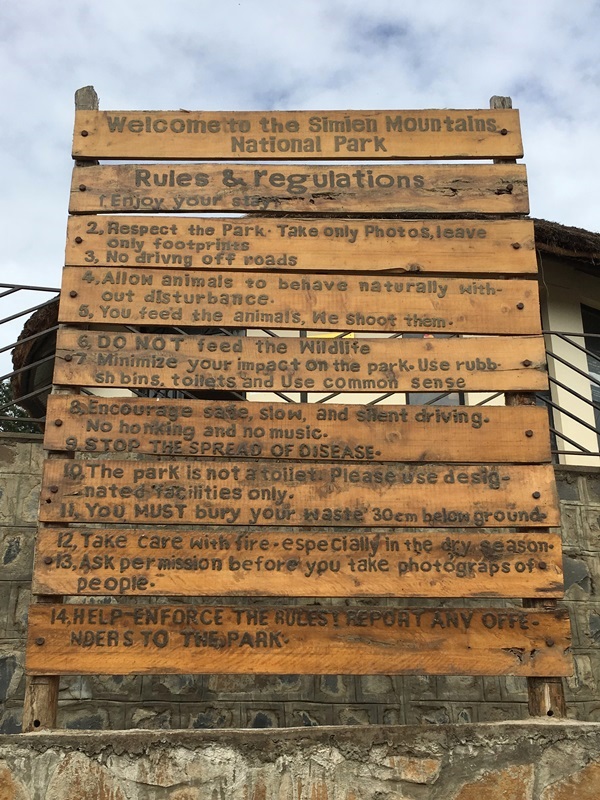 Welcome to the Simien Mountains
National Park
Rules & regulations
1, Enjoy your stay!
2, Respect the Park. Take only Photos, leave
only footprints
3, No drivng off roads
4, Allow animals to behave naturally with-
out disturbance.
5, You feed the animals, We shoot them.
6, DO NOT feed the Wildlife
7 Minimize your impact on the park. Use rubb-
sh bins, toilets and Use common sense
8, Encourage safe, slow, and silent driving.
No honking and no music.
9. STOP THE SPREAD OF DISEASE.
10. The park is not a toilet. Please use desig-
nated facilities only.
11. You MUST bury your waste 30cm below ground.
12, Take care with fire-especially in the dry season.
13, Ask permission before you take photograps of
people.
14. HELP ENFORCE THE RULES! REPORT ANY OFFE-
NDERS TO THE PARK.